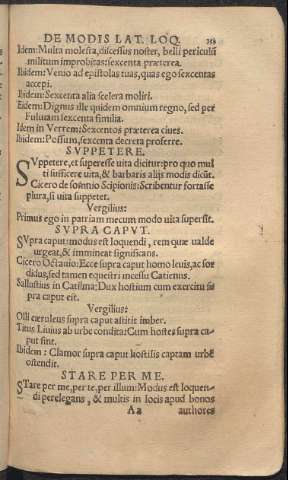 DE MODIS LAT. LOQ.
Idem: Multa molesta, discessus noster, belli periculũ
militum improbitas: sexcenta præterea.
Ibidem: Venio ad epistolas tuas, quas ego sexcentas
accepi.
Ibidem: Sexcenta alia scelera moliri.
Eidem: Dignus ille quidem omnium regno, sed per
Fuluiam sexcenta similia.
Idem in Verrem: Sexcentos præterea ciues.
Ibidem: Possum, sexcenta decreta proferre.
SVPPETERE.
SVppetere, et superesse uita dicitur: pro quo mul
ti sufficere uita, & barbaris alijs modis dicũt.
Cicero de somnio Scipionis: Scribentur fortasse
plura, si uita suppetet.
Vergilius:
Primus ego in patriam mecum modo uita supersit.
SVPRA CAPVT.
SVpra caput: modus est loquendi, rem quæ valde
urgeat, & immineat significans.
Cicero Octauio: Ecce supra caput homo leuis, ac sor
didus, sed tamen equestri incessu Catienus.
Sallustius in Catilina: Dux hostium cum exercitu su
pra caput est.
Vergilius:
Olli cæruleus supra caput astitit imber.
Titus Liuius ab urbe condita: Cum hostes supra ca-
put sint.
Ibidem: Clamor supra caput hostilis captam urbẽ
ostendit.
STARE PER ME.
STare per me, per te, per illum: Modus est loquen-
di perelegans, & multis in locis apud bonos
Aa authores